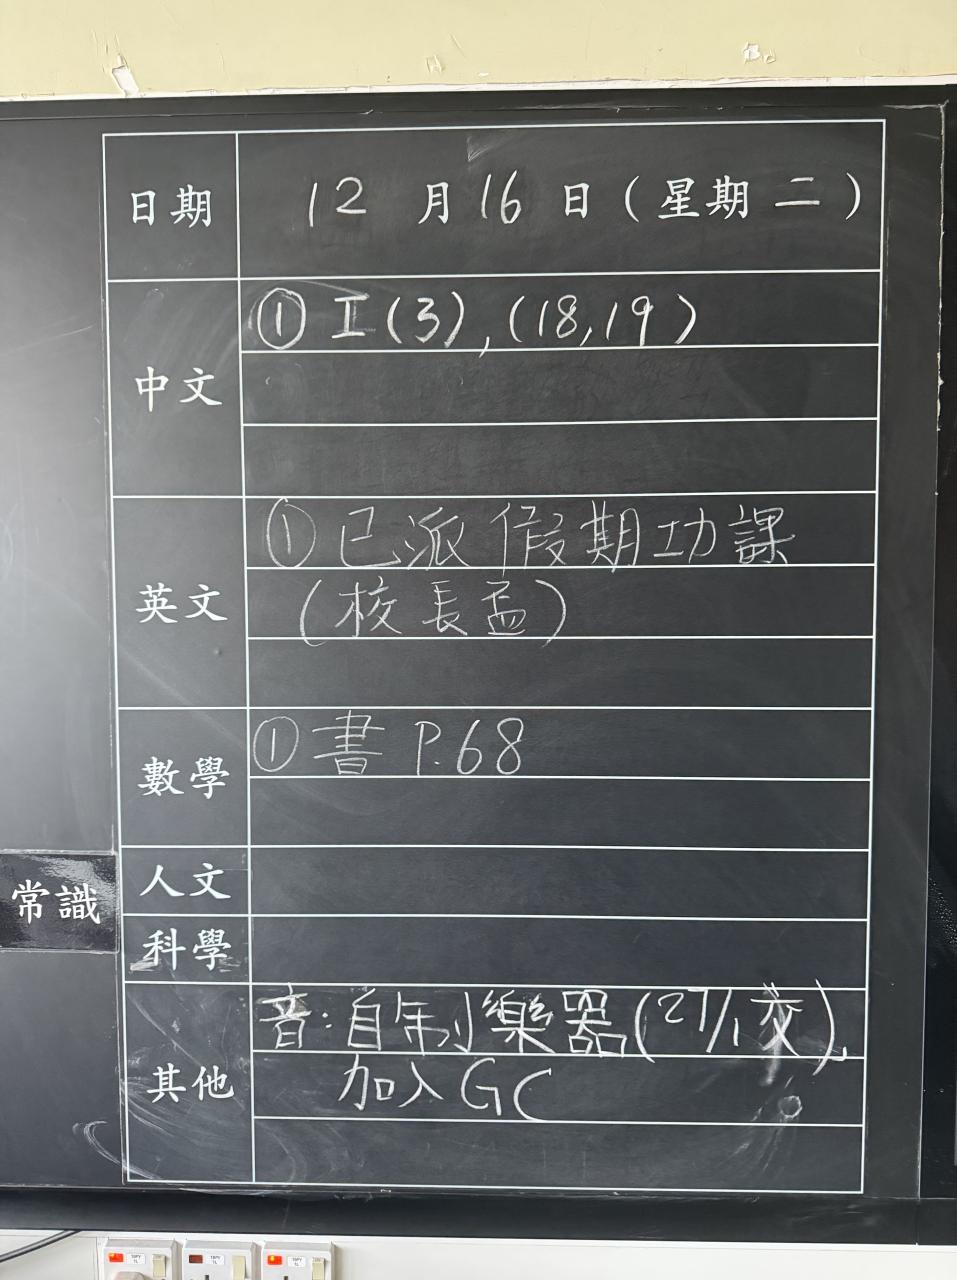 日期 12 月 16 日 ( 星期 二 )
中文 ① 工(3), (18,19)
英文 ① 已派假期功課
(校長盃)
數學 ① 書 P.68
人文
常識
科學
其他 音:自制樂器(27/1交),
加入GC